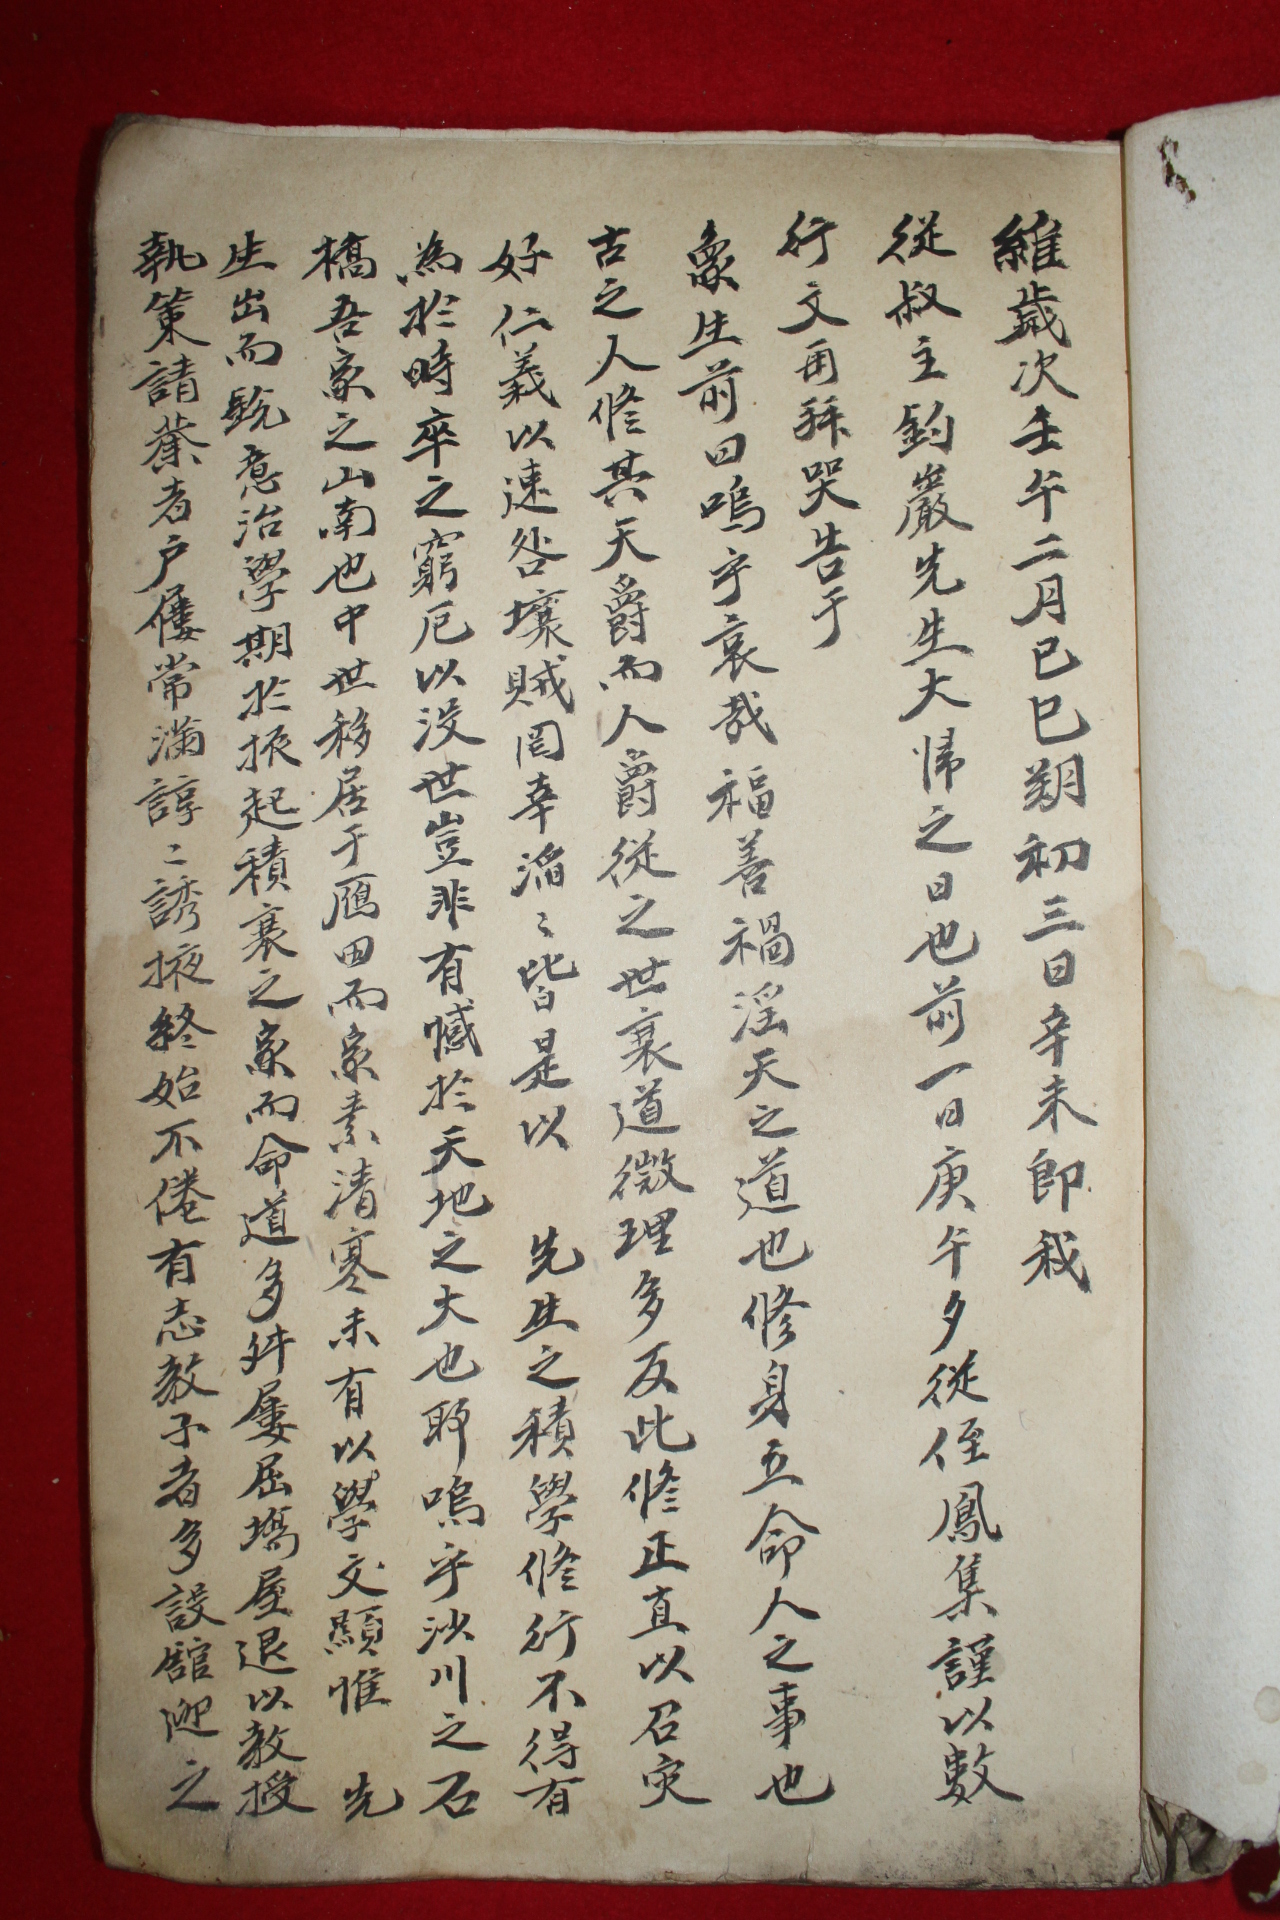 維歲次壬午二月己巳朔初三日辛未即我
從叔主釣巖先生大歸之日也前一日庚午夕從侄鳳集謹以數
行文再拜哭告于
象生前曰嗚乎哀哉福善禍淫天之道也修身立命人之事也
古之人修其天爵而人爵從之世衰道微理多反此修正直以召灾
好仁義以速咎壞賊罔幸滔〻皆是以 先生之積學修行不得有
為於時卒之窮厄以沒世豈非有憾於天地之大也耶嗚乎沙川之石
橋吾家之山南也中世移居于鴈田而家素清寒未有以學文顯惟 先
生出而銳意治學期於振起積衰之家而命道多舛屢屈塲屋退以教授
執策請業者户屨常滿諄〻誘掖終始不倦有志教子者多設舘迎之